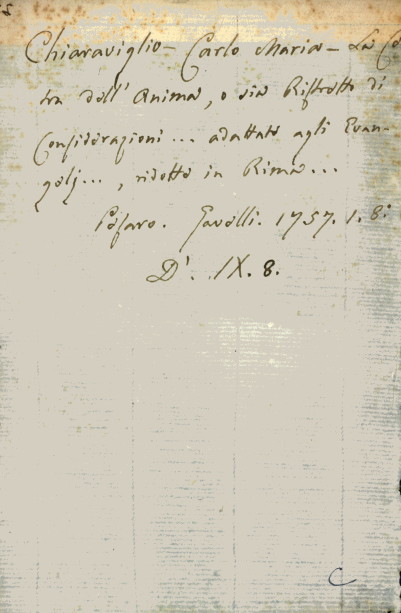 Chiaraviglio - Carlo Maria - La
tra dell'Anima, o sia Ristretto di
Considerazioni ... adattate agli Evan-
gelj ..., ridotto in Rima ...
Pesaro. Gavelli. 1757. 1. 8.
D'. IX. 8.
C